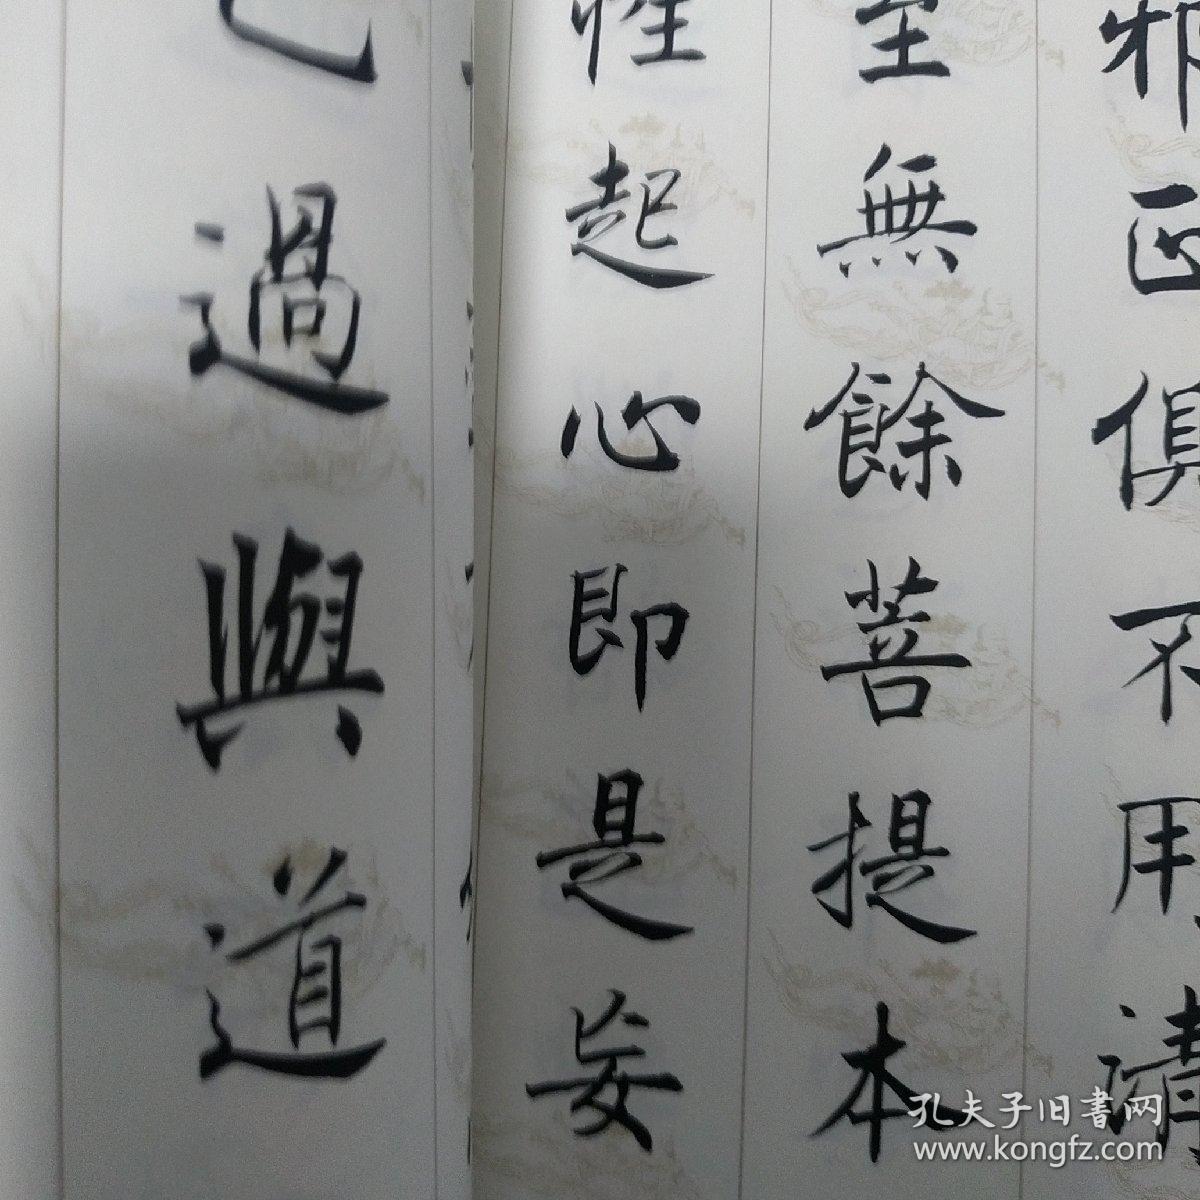 邪正俱不用清
至無餘菩提本
性起心即是妄
己過與道
孔夫子旧書网
www.kongfz.com